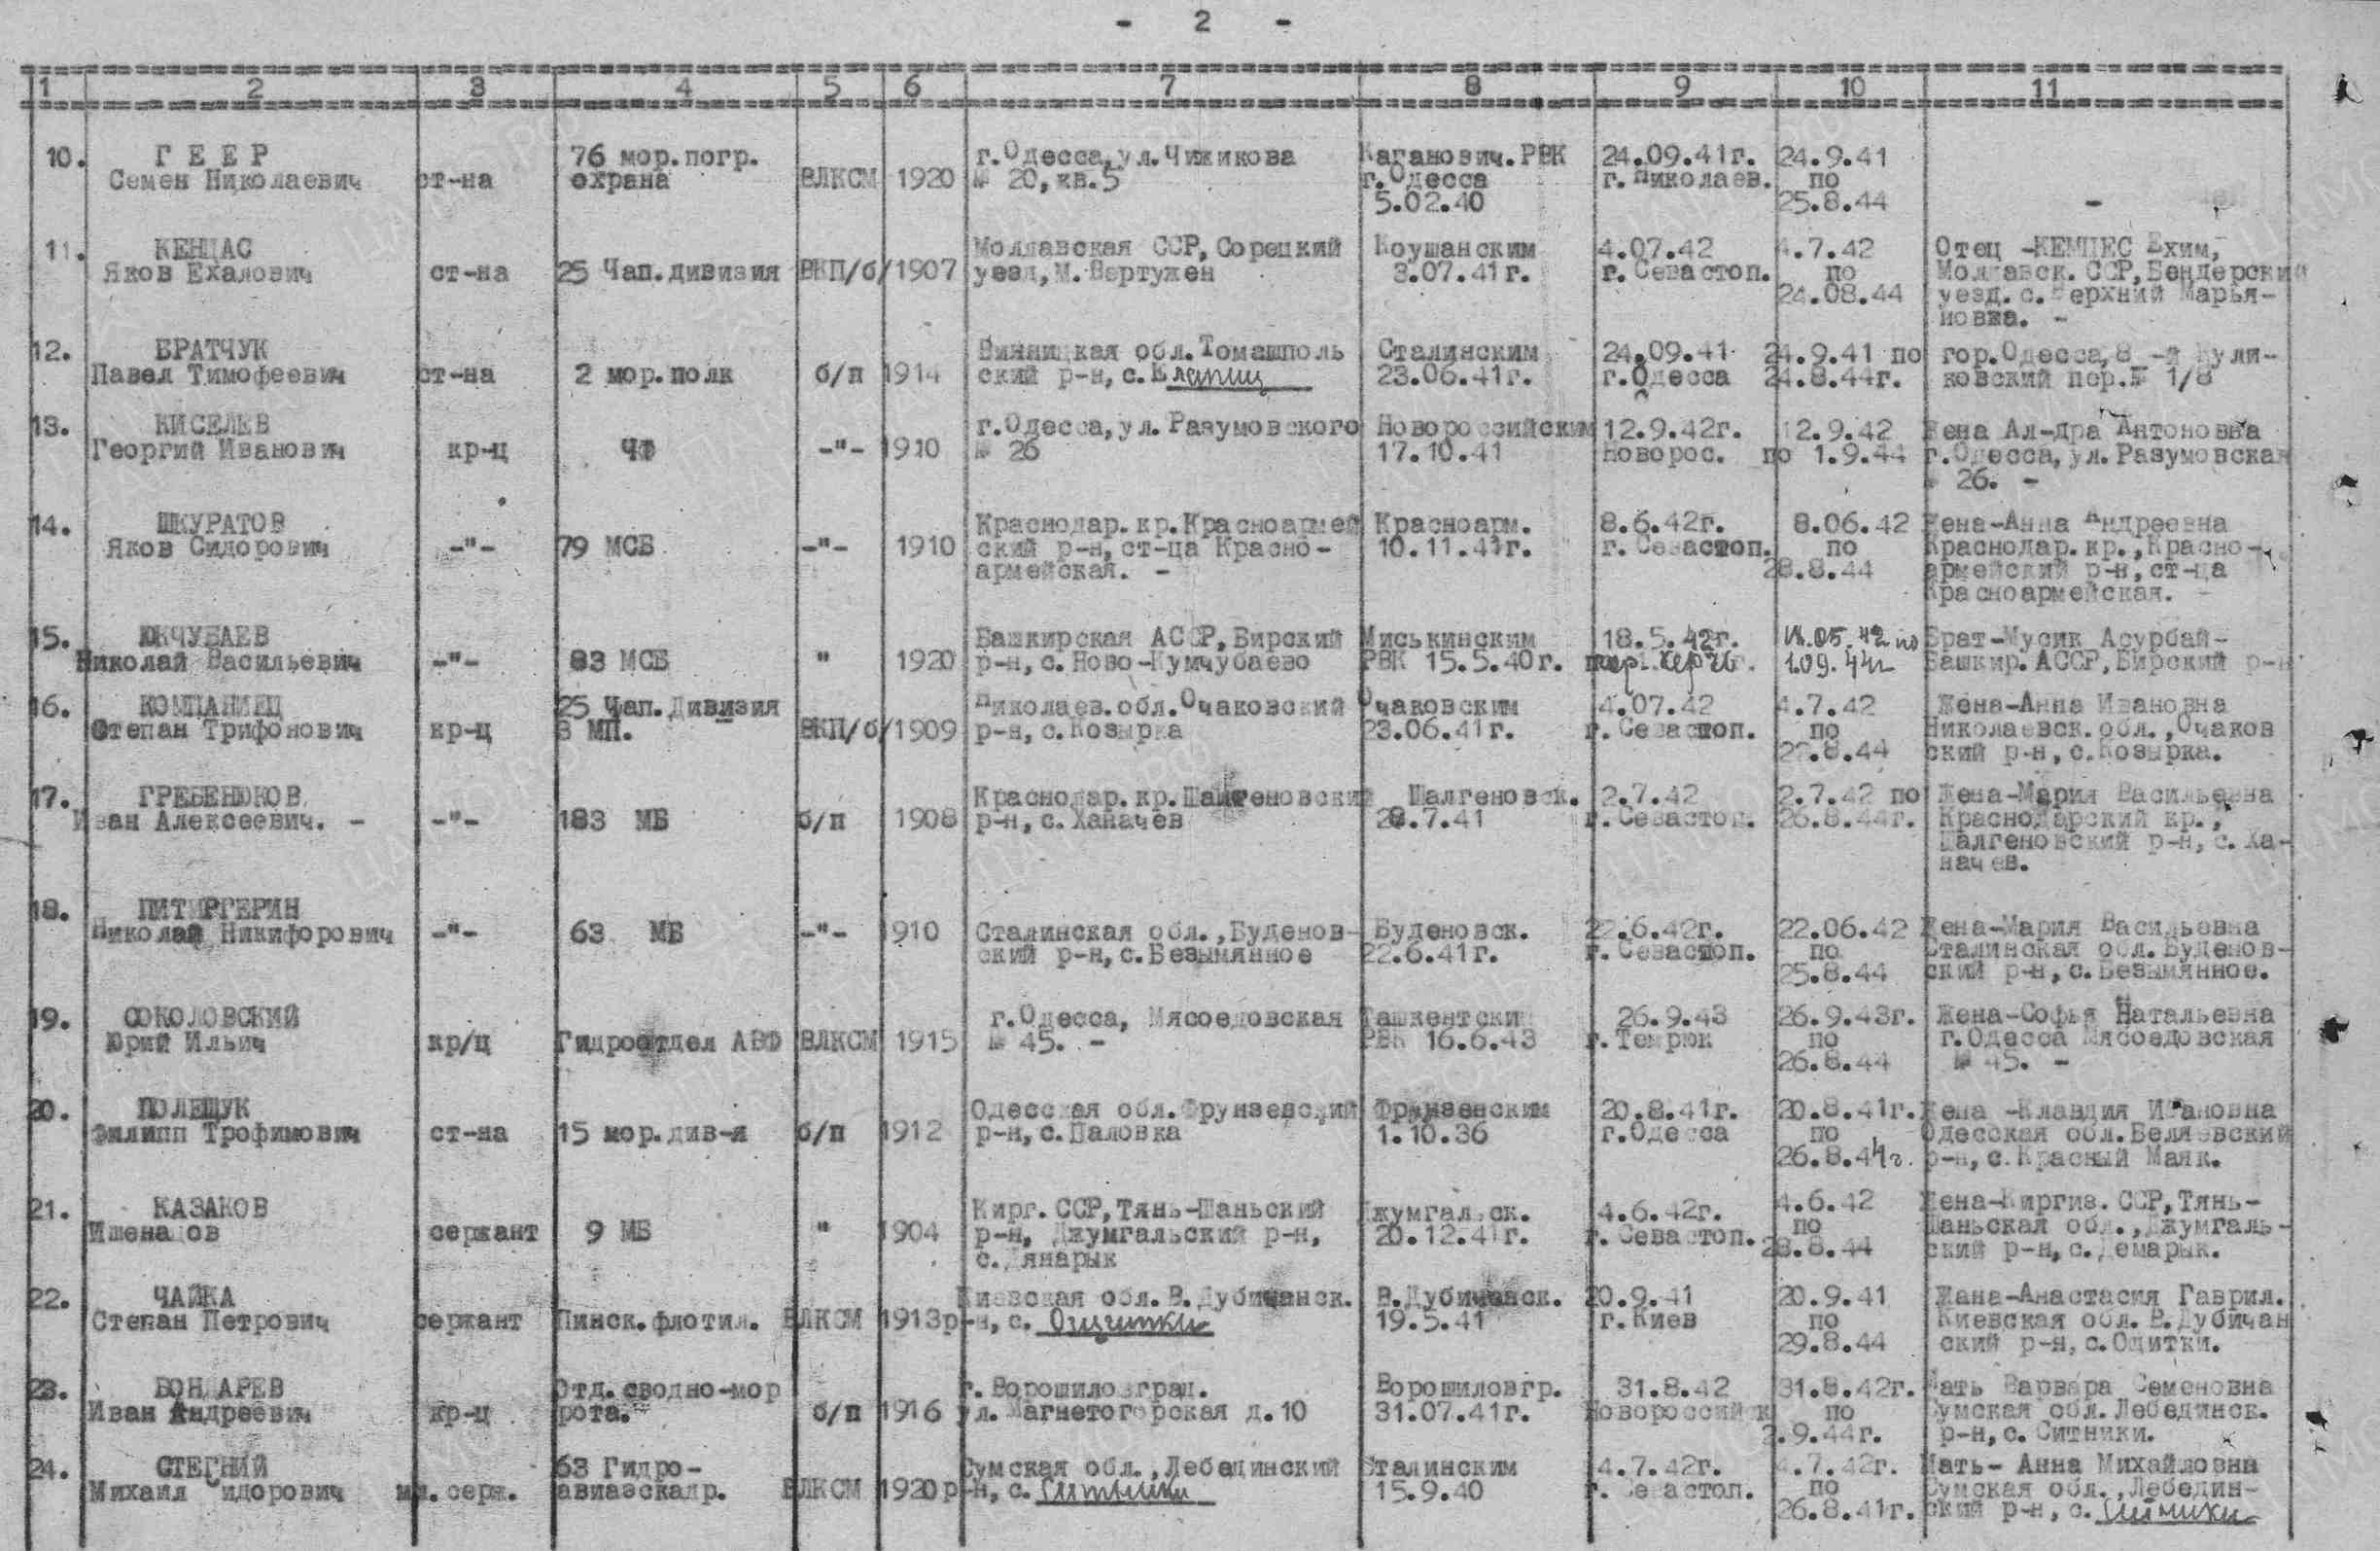 - 2 -
1 2 3 4 5 6 7 8 9 10 11
10. Г Е Е Р 76 мор.погр. г.Одесса,ул.Чижикова Каганович.РВК 24.09.41г. 24.9.41
Семен Николаевич ст-на охрана ВЛКСМ 1920 № 20,кв.5 г.Одесса г.Николаев. по
5.02.40 25.8.44 -
11. КЕНЦАС Молдавская ССР,Сорецкий Коушанским 4.07.42 4.7.42 Отец -КЕМПЕС Ехим,
Яков Ехалович ст-на 25 Чап.дивизия ВКП/б/ 1907 уезд,м.Вертужен 3.07.41г. г.Севастоп. по Молдавск.ССР,Бендерский
24.08.44 уезд.с.Верхний Марья-
новка. -
12. БРАТЧУК Винницкая обл.Томашполь Сталинским 24.09.41 24.9.41 по гор.Одесса,8 -й Кули-
Павел Тимофеевич ст-на 2 мор.полк б/п 1914 ский р-н,с. 23.06.41г. г.Одесса 24.8.44г. ковский пер.№ 1/8
13. КИСЕЛЕВ г.Одесса,ул.Разумовского Новороссийским 12.9.42г. 12.9.42 Жена Ал-дра Антоновна
Георгий Иванович кр-ц ЧФ -"- 1910 № 26 17.10.41 Новорос. по 1.9.44 г.Одесса,ул.Разумовская
№ 26. -
14. ШКУРАТОВ Краснодар.кр.Красноармей Красноарм. 8.6.42г. 8.06.42 Жена-Анна Андреевна
Яков Сидорович -"- 79 МСБ -"- 1910 ский р-н,ст-ца Красно- 10.11.41г. г.Севастоп. по Краснодар.кр.,Красно-
армейская. - 28.8.44 армейский р-н,ст-ца
Красноармейская. -
15. ЮКЧУБАЕВ Башкирская АССР,Бирский Миськинским 18.5.42г. 18.05.42 по Брат-Мусик Асурбай-
Николай Васильевич -"- 83 МСБ " 1920 р-н,с.Ново-Кумчубаево РВК 15.5.40г. 1.09.44г Башкир.АССР,Бирский р-н
16. КОМПАНИЕЦ 25 Чап.Дивизия Николаев.обл.Очаковский Очаковским 4.07.42 4.7.42 Жена-Анна Ивановна
Степан Трифонович кр-ц 3 МП. ВКП/б/ 1909 р-н,с.Козырка 23.06.41г. г.Севастоп. по Николаевск.обл.,Очаков
22.8.44 ский р-н,с.Козырка.
17. ГРЕБЕНЮКОВ Краснодар.кр. Шалгеновск. 2.7.42 2.7.42 по Жена-Мария Васильевна
Иван Алексеевич. - -"- 183 МБ б/п 1908 р-н,с.Ханачев 28.7.41 г.Севастоп. 26.8.44г. Краснодарский кр.,
Шалгеновский р-н,с.Ха-
начев.
18. ПИТИРГЕРИН
Николай Никифорович -"- 63 МБ -"- 1910 Сталинская обл.,Буденов- Буденовск. 22.6.42г. 22.06.42 Жена-Мария Васильевна
ский р-н,с.Безымянное 22.6.41г. г.Севастоп. по Сталинская обл.Буденов-
25.8.44 ский р-н,с.Безымянное.
19. СОКОЛОВСКИЙ г.Одесса, Мясоедовская Ташкентски 26.9.43 26.9.43г. Жена-Софья Натальевна
Юрий Ильич кр/ц Гидроотдел АВФ ВЛКСМ 1915 № 45. - РВК 16.6.43 г.Темрюк по г.Одесса Мясоедовская
26.8.44 № 45. -
20. ПОЛЕЩУК Одесская обл.Фрунзевский Фрунзенским 20.8.41г. 20.8.41г. Жена -Клавдия Ивановна
Филипп Трофимович ст-на 15 мор.див-я б/п 1912 р-н,с.Паловка 1.10.36 г.Одесса по Одесская обл.Беляевский
26.8.44г. р-н,с.Красный Маяк.
21. КАЗАКОВ Кирг.ССР,Тянь-Шаньский Джумгальск. 4.6.42г. 4.6.42 Жена-Киргиз.ССР,Тянь-
Ишенадов сержант 9 МБ " 1904 р-н, Джумгальский р-н, 20.12.41г. г.Севастоп. по Шаньская обл.,Джумгаль-
с.Дянарык 28.8.44 ский р-н,с.Демарык.
22. ЧАЙКА Киевская обл.В.Дубичанск. В.Дубичанск. 20.9.41 20.9.41 Жана-Анастасия Гаврил.
Степан Петрович сержант Пинск.флотил. ВЛКСМ 1913 р-н,с. 19.5.41 г.Киев по Киевская обл.В.Дубичан
29.8.44 ский р-н,с.Ощитки.
23. БОНДАРЕВ Отд.сводно-мор г.Ворошиловград. Ворошиловгр. 31.8.42 31.8.42г. Мать Варвара Семеновна
Иван Андреевич кр-ц рота. б/п 1916 ул.Магнетогорская д.10 31.07.41г. Новороссийск по Сумская обл.Лебединск.
2.9.44г. р-н,с.Ситники.
24. СТЕГНИЙ 63 Гидро- Сумская обл.,Лебединский Сталинским 4.7.42г. 4.7.42г. Мать- Анна Михайловна
Михаил Сидорович мл.серж. авиаэскадр. ВЛКСМ 1920 р-н,с. Ситники 15.9.40 г.Севастоп. по Сумская обл.,Лебедин-
26.8.41г. ский р-н,с. Ситники